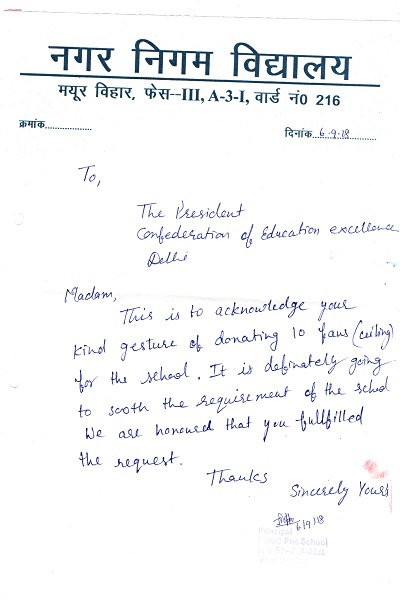 नगर निगम विद्यालय
मयूर विहार, फेस--III, A-3-I, वार्ड नं0 216
क्रमांक.................... दिनांक 6.9.18
To,
The President
Confederation of Education excellence
Delhi
Madam,
This is to acknowledge your
kind gesture of donating 10 fans (ceiling)
for the school. It is definately going
to sooth the requirement of the school
We are honoured that you fullfilled
the request.
Thanks
Sincerely Yours
6/9/18
Principal
Pry School